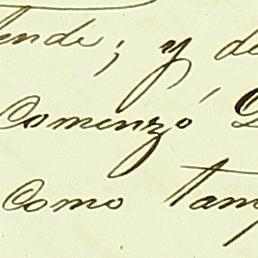 ende; y de
Comenzó
Como tam